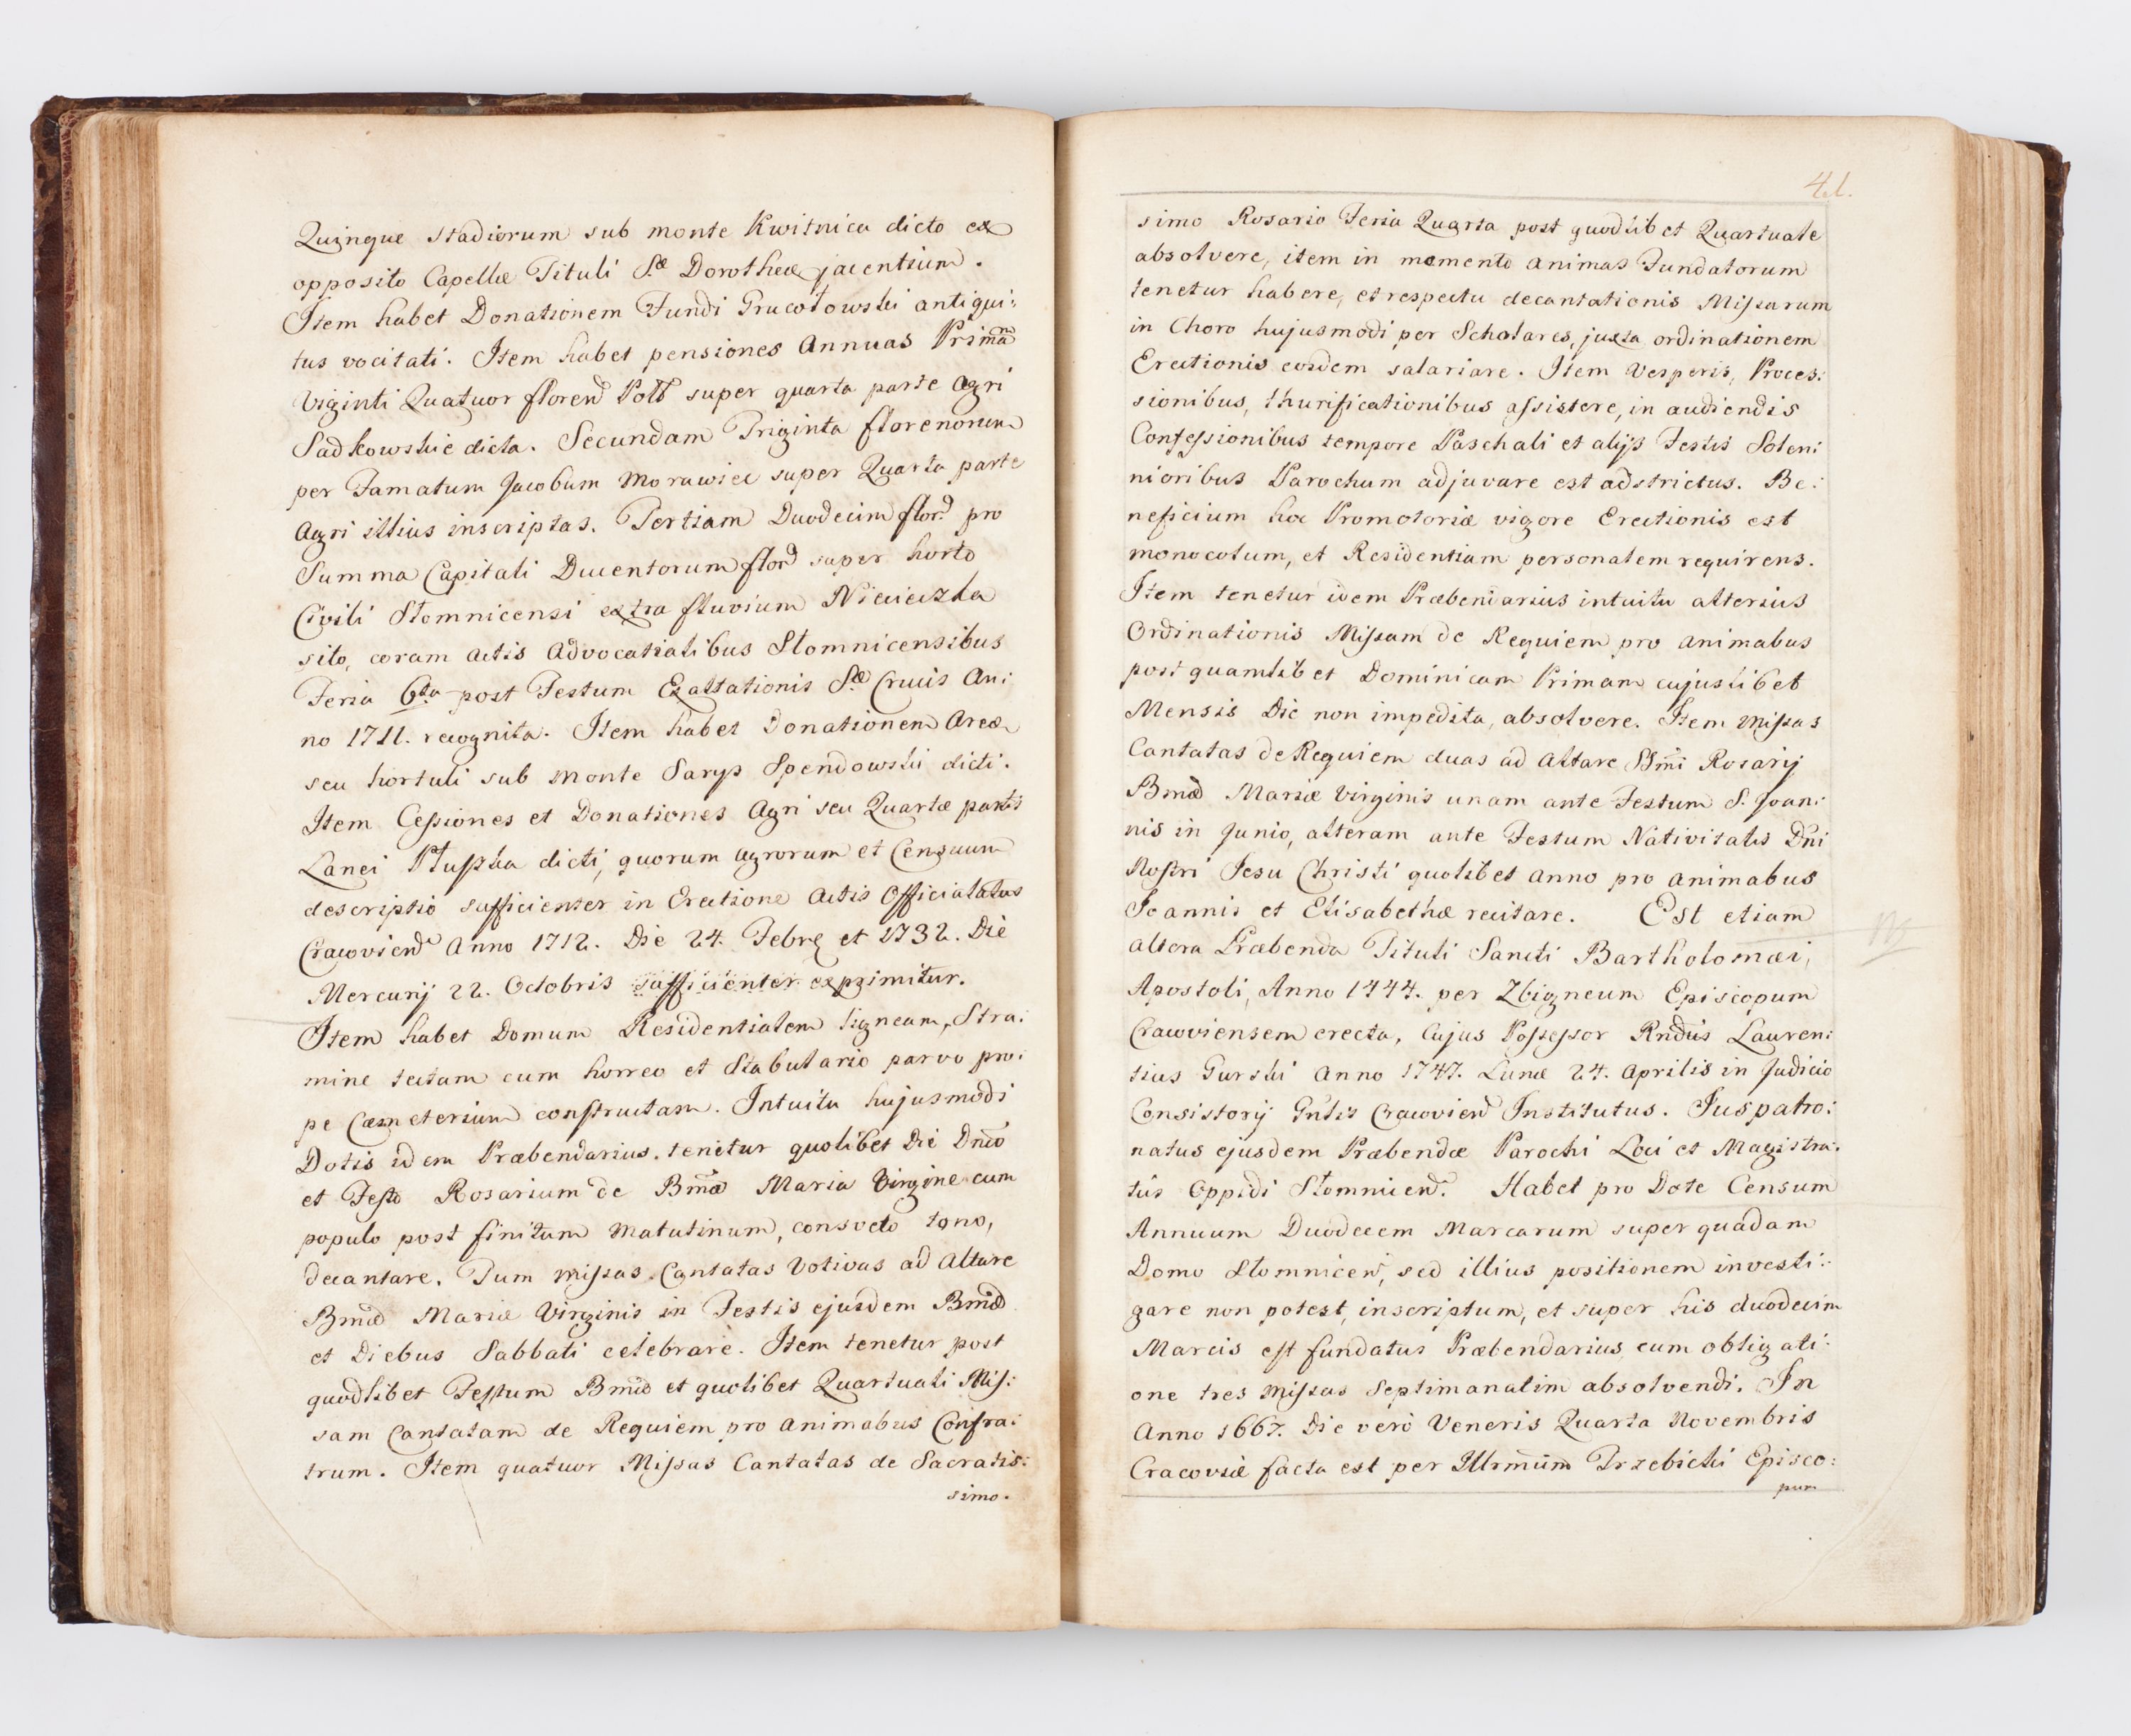 Quinque stadiorum sub monte Kwitnica dicto ex
opposito Capellæ Tituli S.æ Dorotheæ jacentium.
Item habet Donationem Fundi Grucołowski antiqui:
tus vocitati. Item habet pensiones Annuas Primã
Viginti Quatuor floren Poll super quarta parte Agri
Sadkowskie dicta. Secundam Triginta florenorum
per Famatum Jacobum Morawiec super Quarta parte
Agri illius inscriptas. Tertiam Duodecim flor. pro
Summa Capitali Ducentorum flor super horto
Civili Słomnicensi extra fluvium Nicieczka
sito, coram Actis Advocatialibus Słomnicensibus
Feria 6ta post Festum Exaltationis S.æ Crucis An:
no 1711. recognita. Item habet Donationem Areæ
seu hortuli sub Monte Sarys Spendowski dicti.
Item Cessiones et Donationes Agri seu Quartæ partis
Lanei Ptuszka dicti, quorum agrorum et Censuum
descriptio sufficienter in Erectione Actis Officialatus
Cracovien Anno 1712. Die 24. Febr et 1732. Die
Mercurij 22. Octobris sufficienter exprimitur.
Item habet Domum Residentialem ligneam, Stra:
mine tectam cum horreo et Stabulario parvo pro:
pe Cæmeterium constructam. Intuitu hujusmodi
Dotis idem Præbendarius tenetur quolibet Die Dnico
et Festo Rosarium de Bmã Maria Virgine cum
populo post finitum Matutinum, consveto tono,
decantare. Tum Missas Cantatas Votivas ad Altare
Bmæ Mariæ Virginis in Festis ejusdem Bmæ
et Diebus Sabbati celebrare. Item tenetur post
quodlibet Festum Bmæ et quolibet Quartuali Mis:
sam Cantatam de Requiem pro animabus Confra:
trum. Item quatuor Missas Cantatas de Sacratis:
simo.
41.
simo Rosario Feria Quarta post quodlibet Quartuale
absolvere, item in memento animas Fundatorum
tenetur habere, et respectu decantationis Missarum
in Choro hujusmodi per Scholares, juxta ordinationem
Erectionis eosdem salariare. Item Vesperis, Proces:
sionibus, thurificationibus assistere, in audiendis
Confessionibus tempore Paschali et alijs Festis Solen:
nioribus Parochum adjuvare est adstrictus. Be:
neficium hoc Promotoriæ vigore Erectionis est
monocolum, et Residentiam personalem requirens.
Item tenetur idem Præbendarius intuitu alterius
Ordinationis Missam de Requiem pro animabus
post quamlibet Dominicam Primam cujuslibet
Mensis Die non impedita, absolvere. Item Missas
Cantatas de Requiem duas ad Altare SSmi Rosarij
Bmæ Mariæ Virginis unam ante Festum S. Joan:
nis in Junio, alteram ante Festum Nativitatis Dni
Nostri Jesu Christi quolibet anno pro animabus
Joannis et Elisabethæ recitare. Est etiam
altera Præbenda Tituli Sancti Bartholomæi,
Apostoli, Anno 1444. per Zbigneum Episcopum
Cracoviensem erecta, Cujus Possessor Rndus Lauren:
tius Gurski Anno 1747. Lunæ 24. Aprilis in Judicio
Consistorij Gnlis Cracovien Institutus. Juspatro:
natus ejusdem Præbendæ Parochi Loci et Magistra:
tus Oppidi Słomnicen. Habet pro Dote Censum
Annuum Duodecem Marcarum super quadam
Domo Słomnicen, sed illius positionem investi:
gare non potest, inscriptum, et super his duodecim
Marcis est fundatus Præbendarius cum obligati:
one tres Missas Septimanatim absolvendi. In
Anno 1667. Die verò Veneris Quarta Novembris
Cracoviæ facta est per Illrmum Trzebicki Episco:
pum